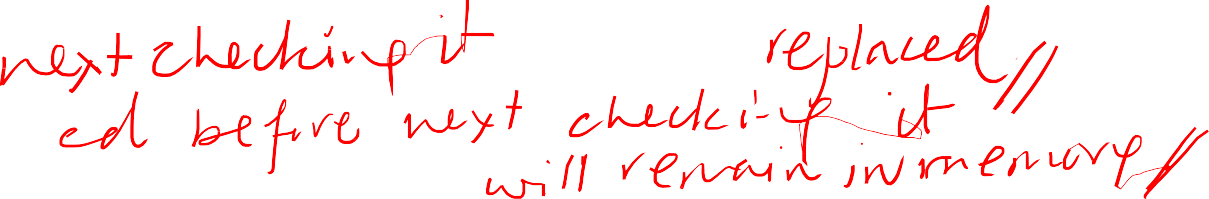 next checking it replaced //
ed before next checking it
will remain in memory //